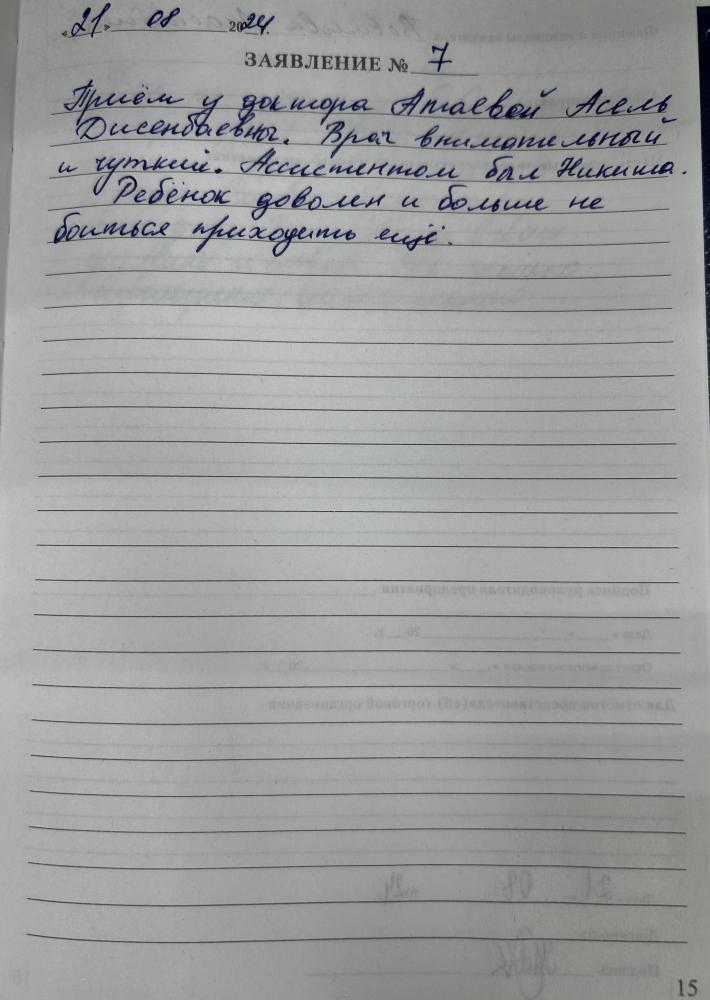 «21» 08 2024.
ЗАЯВЛЕНИЕ № 7
Приём у доктора Атаевой Асель
Дисенбаевны. Врач внимательный
и чуткий. Ассистентом был Никита.
Ребёнок доволен и больше не
боиться приходить ещё.
15